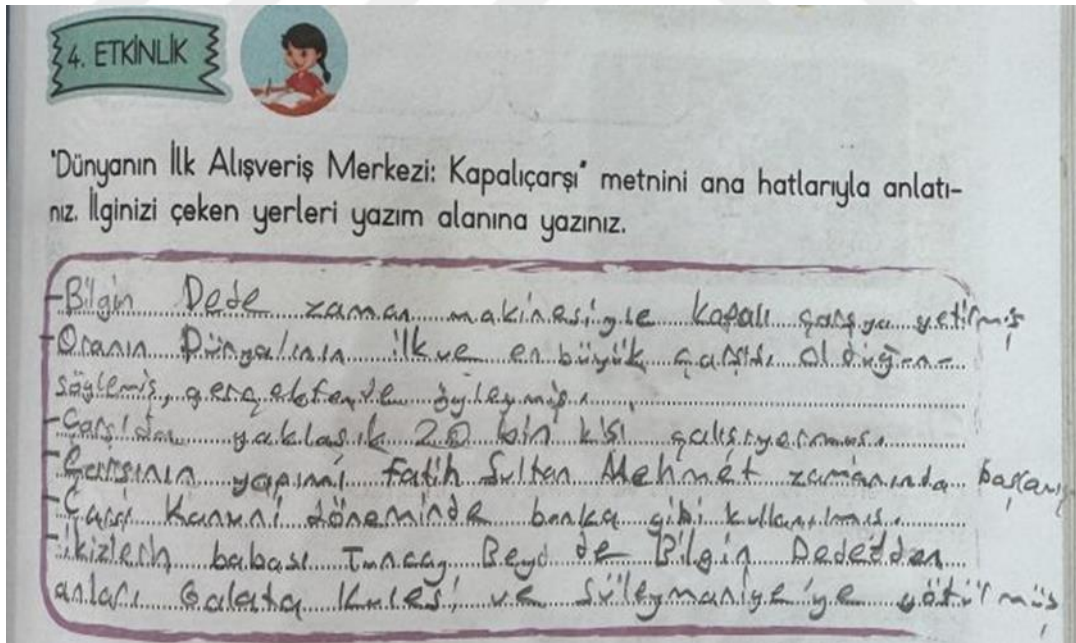 4. ETKİNLİK
"Dünyanın İlk Alışveriş Merkezi: Kapalıçarşı" metnini ana hatlarıyla anlatı-
nız. İlginizi çeken yerleri yazım alanına yazınız.
-Bilgin Dede zaman makinesiyle Kapalı çarşıya getirmiş
-Oranın Dünya'nın ilk ve en büyük çarşısı olduğunu
söylemiş, gerçektende öyleymiş.
-Çarşıda yaklaşık 20 bin kişi çalışıyormuş.
-Çarşının yapımı Fatih Sultan Mehmet zamanında başlamış
-Çarşı Kanuni döneminde banka gibi kullanılmış.
-İkizlerin babası Tuncay Beyd de Bilgin Dededden
onları Galata Kulesi ve Süleymaniye'ye götürmüş